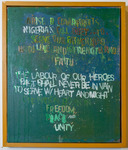 ARISE O COMPATRIOTS
NIGERIA'S CALL OBEY
TO SERVE OUR FATHERLAND
WITH LOVE AND STRENGTH AND
FAITH
THE LABOUR OF OUR HEROES
PAST SHALL NEVER BE IN VAIN
TO SERVE WITH HEART AND MIGHT
FREEDOM
PEACE AND
UNITY